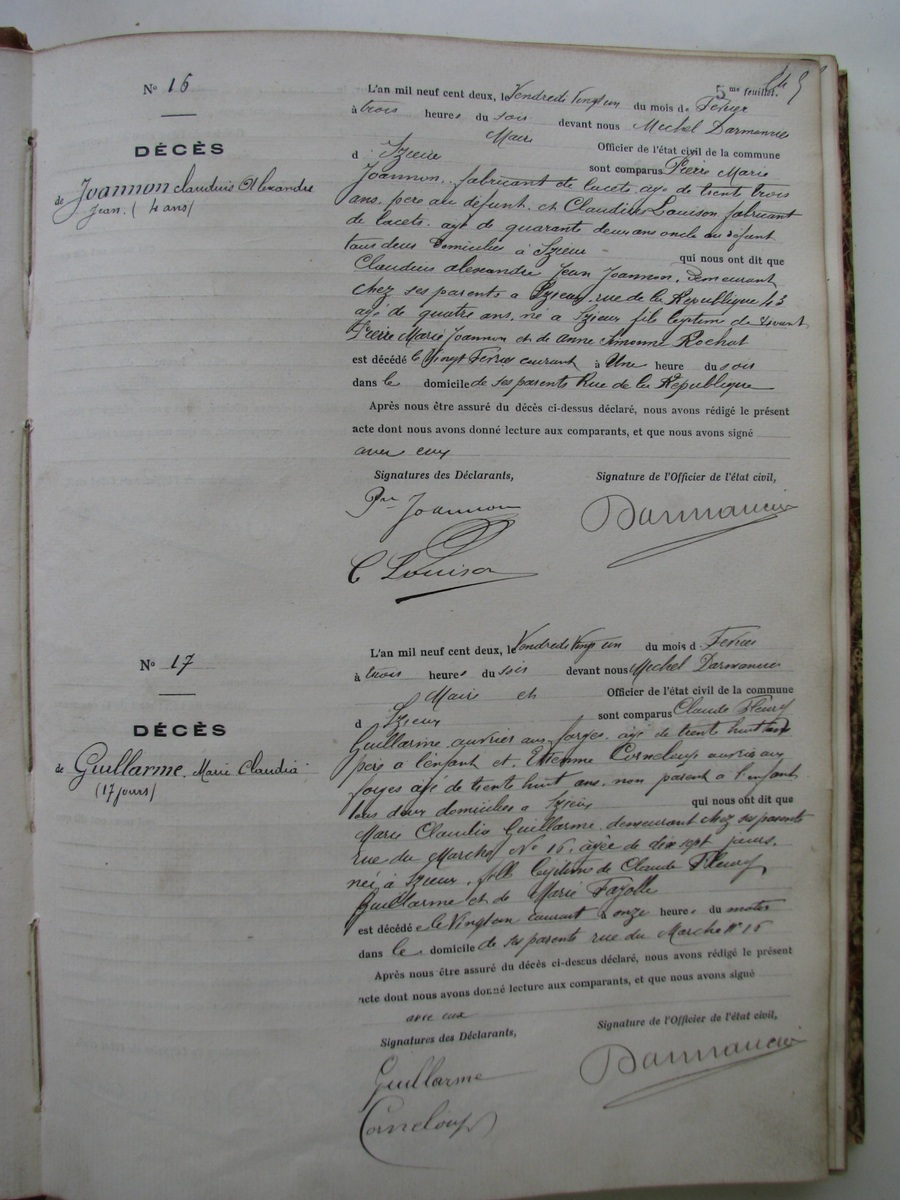 5me feuillet.
No 16
DÉCÈS
de Joannon Claudius Alexandre
Jean. (4 ans)
L'an mil neuf cent deux, le Vendredi Vingt un du mois de Fevrier
à trois heures du soir devant nous Michel Darmancier
Maire Officier de l'état civil de la commune
d Izieux sont comparus Pierre Marie
Joannon, fabricant de lacets, agé de trente trois
ans, père au défunt, et Claudius Louison fabricant
de lacets, agé de quarante deux ans oncle au défunt
tous deux domiciliés à Izieux qui nous ont dit que
Claudius Alexandre Jean Joannon, demeurant
chez ses parents a Izieux, rue de la République 43
agé de quatre ans, né a Izieux fils légitime de
Pierre Marie Joannon et de Anne Simonne Rochat
est décédé le Vingt Fevrier courant à Une heure du soir
dans le domicile de ses parents Rue de la République
Après nous être assuré du décès ci-dessus déclaré, nous avons rédigé le présent
acte dont nous avons donné lecture aux comparants, et que nous avons signé
avec eux
Signatures des Déclarants, Signature de l'Officier de l'état civil,
Joannon Darmancier
C Louison
No 17
DÉCÈS
de Guillarme, Marie Claudia
(17 jours)
L'an mil neuf cent deux, le Vendredi Vingt un du mois d Fevrier
à trois heures du soir devant nous Michel Darmancier
Maire et Officier de l'état civil de la commune
d Izieux sont comparus Claude Fleury
Guillarme, ouvrier aux forges, agé de trente huit ans
père a l'enfant et Etienne Corneloup ouvrier aux
forges agé de trente huit ans, non parent a l'enfant
tous deux domiciliés a Izieux qui nous ont dit que
Marie Claudia Guillarme demeurant chez ses parents
rue du Marché No 16, agée de dix sept jours,
née à Izieux, fille légitime de Claude Fleury
Guillarme et de Marie Fayolle
est décédé e le Vingt un courant à onze heures du matin
dans le domicile de ses parents rue du Marché No 16
Après nous être assuré du décès ci-dessus déclaré, nous avons rédigé le présent
acte dont nous avons donné lecture aux comparants, et que nous avons signé
avec eux
Signatures des Déclarants, Signature de l'Officier de l'état civil,
Guillarme Darmancier
Corneloup